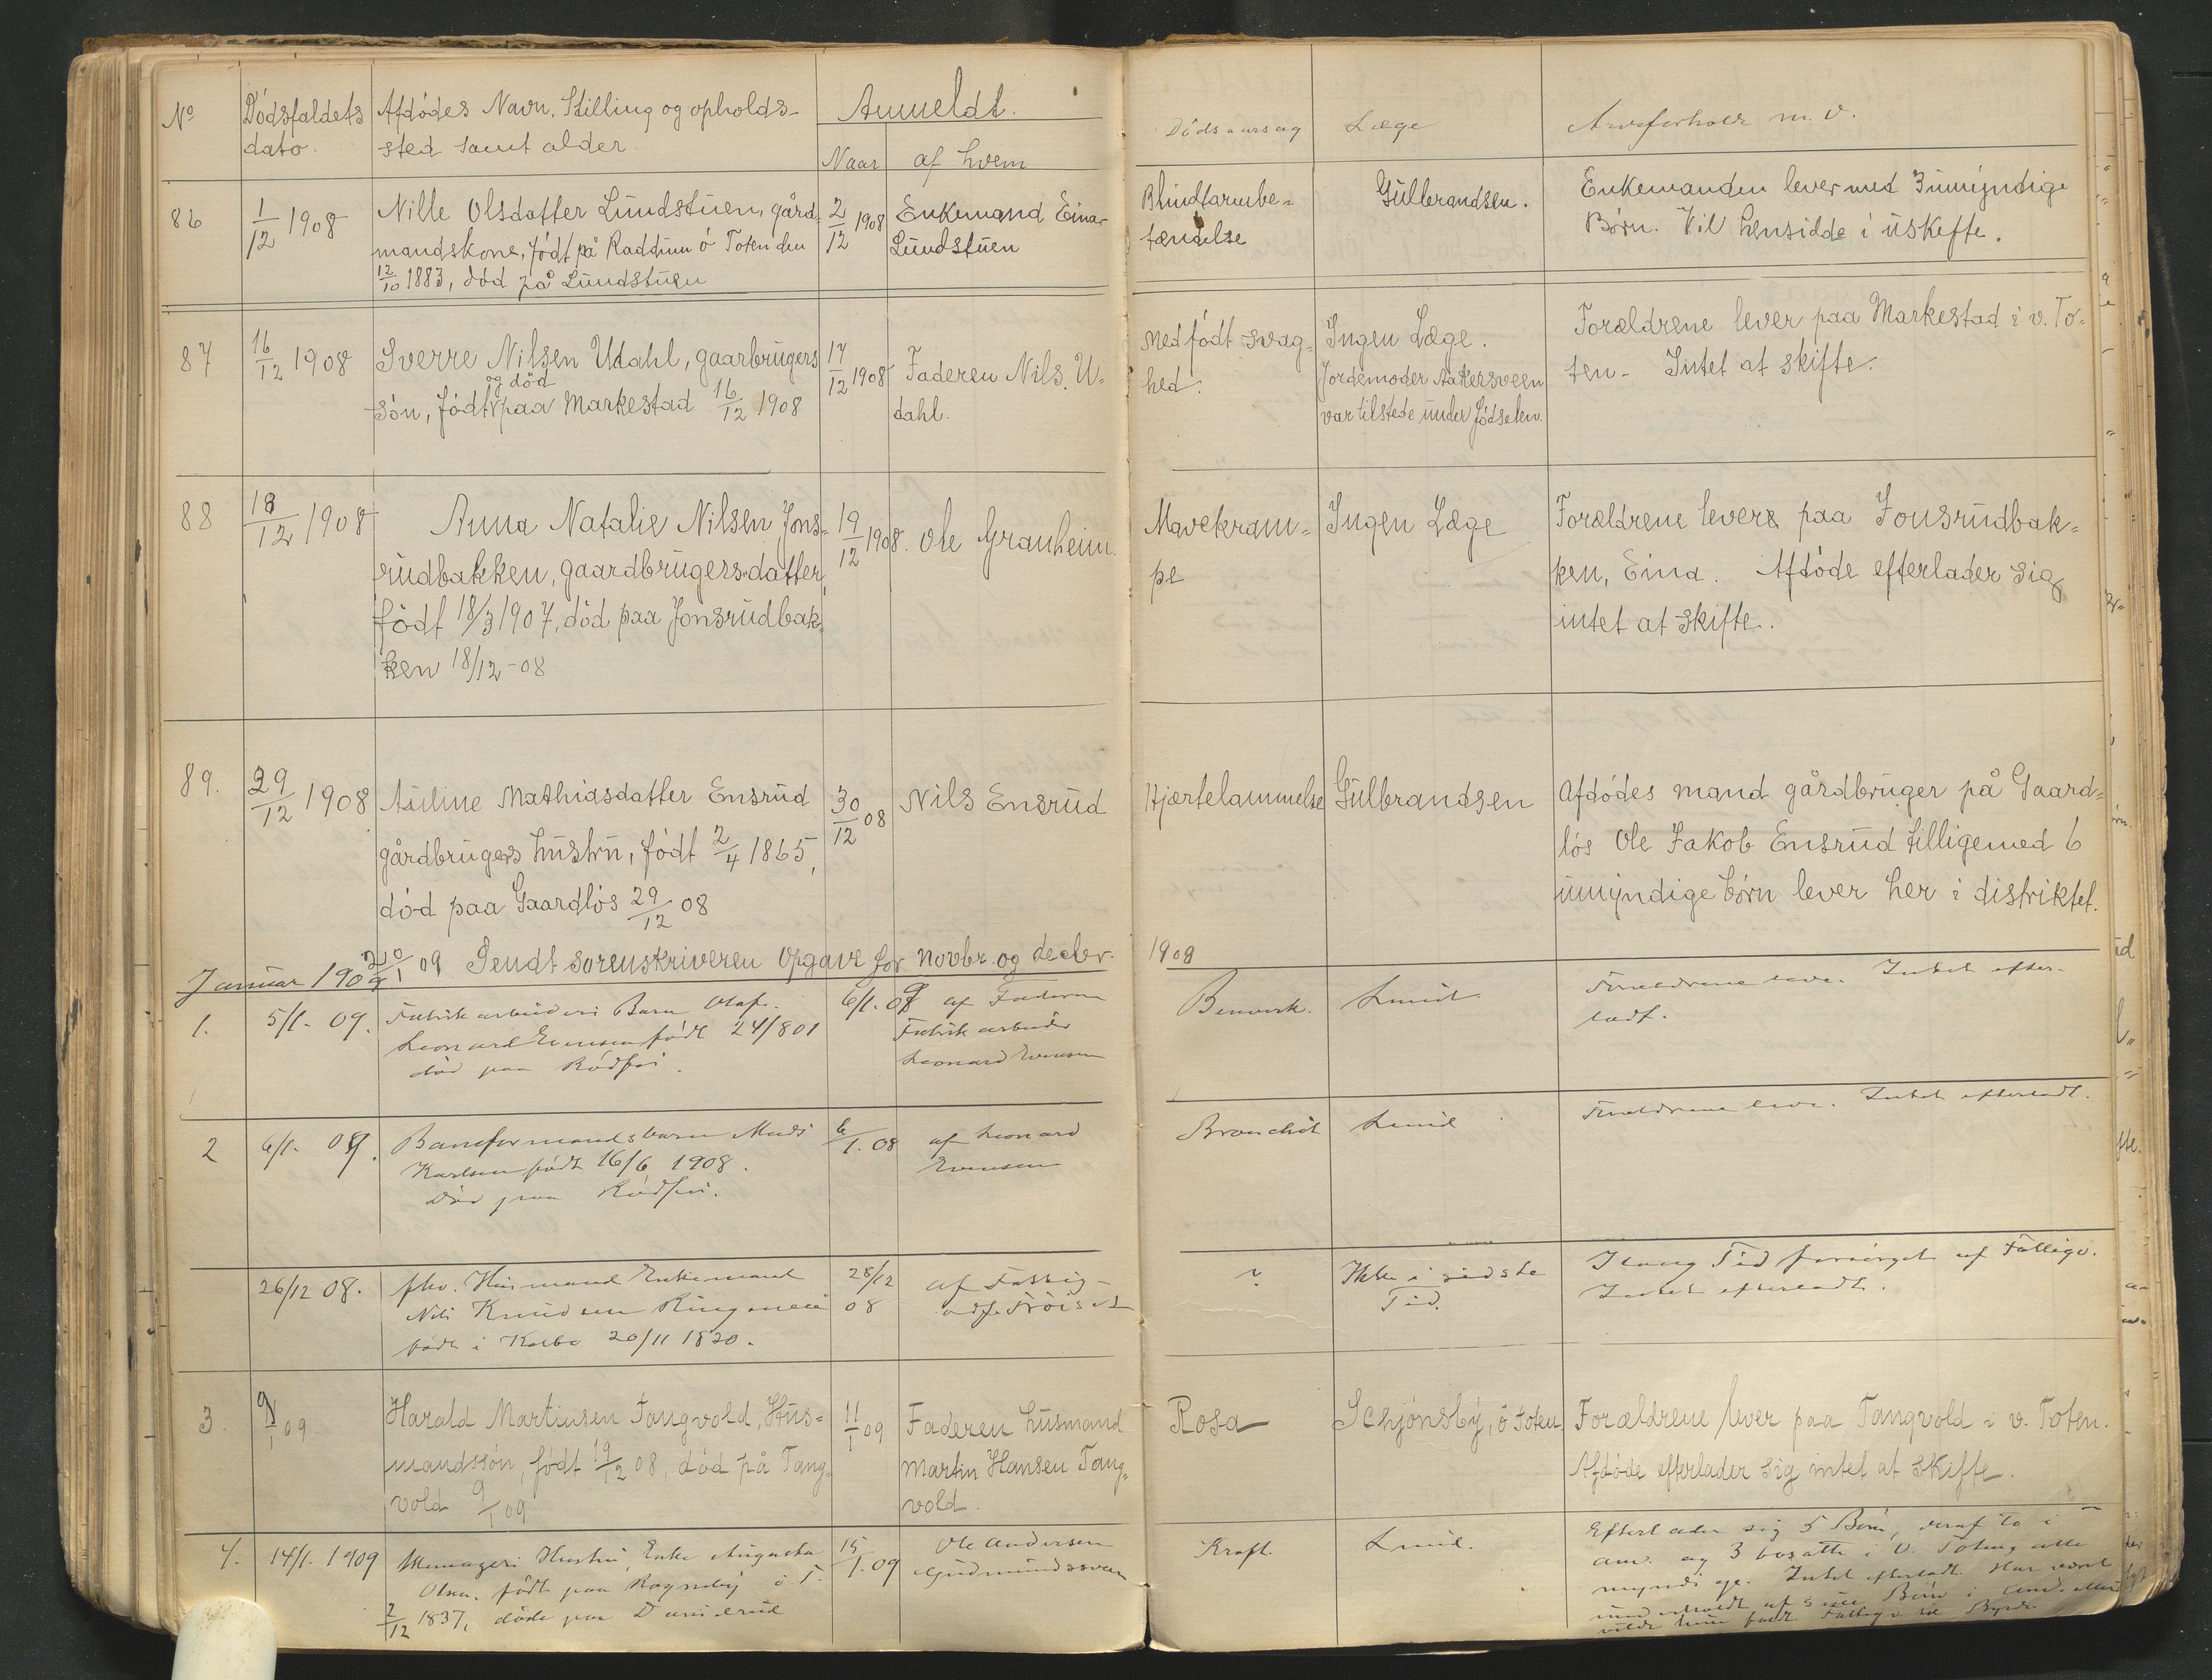 No
Dödsfaldets
dato.
Afdödes Navn, Stilling og opholds-
sted samt alder
Anmeldt.
Naar
af hvem
Dödsaarsag
Læge
Arveforhold m. v.
86
1/12 1908
Nille Olsdatter Lundstuen, gård-
mandskone, født på Raddum ö Toten den
12/10 1883, død på Lundstuen
2/12 1908
Enkemand Einar
Lundstuen
Blindtarmbe-
tændelse
Gulbrandsen.
Enkemanden lever med 3 umyndige
Børn. Vil hensidde i uskifte.
87
16/12 1908
Sverre Nilsen Udahl, gaarbrugers
og död
sön, født paa Markestad 16/12 1908
17/12 1908
Faderen Nils U-
dahl.
Medfödt svag-
hed.
Ingen Læge.
Jordemoder Aakersveen
var tilstede under födselen.
Forældrene lever paa Markestad i v. To-
ten - Intet at skifte.
88
18/12 1908
Anna Natalie Nilsen Jons-
rudbakken, gaardbrugersdatter,
født 18/3 1907, död paa Jonsrudbak-
ken 18/12-08
19/12 1908.
Ole Granheim.
Mavekram-
pe
Ingen Læge
Forældrene lever paa Jonsrudbak-
ken, Eina. Afdöde efterlader sig
intet at skifte.
89.
29/12 1908
Auline Mathiasdatter Ensrud
gårdbrugers hustru, født 2/4 1865,
död paa Gaardlös 29/12 08
30/12 08
Nils Ensrud
Hjærtelammelse
Gulbrandsen
Afdödes mand gårdbruger på Gaard-
lös Ole Jakob Ensrud tilligemed 6
umyndige börn lever her i distriktet.
20/1 09 Sendt sorenskriveren Opgave for novbr. og decbr.
Januar 1909
1909
1.
5/1. 09.
Fabrikarbeider Barn Olaf
Leonard Evensen født 24/8 01
död paa Rödfos.
6/1. 09
af Faderen
Fabrikarbeider
Leonard Evensen
Lund
Forældrene leve. Intet efter-
ladt.
2
6/1. 09.
Karlsen født 16/6 1908.
Död paa Rödfos.
6/1. 08
af Leonard
Evensen
Bronchit
Lund
Forældrene leve. Intet efterladt.
26/12 08.
fhv. Husmand Enkemand
Nils Knudsen Ringen
født i Kolbo 20/11 1820.
28/12
08
af Fattig-
?
Ikke i sidste
Tid.
I lang Tid forsörget af Fattigv.
Intet efterladt.
3
9/1 09
Harald Martinsen Tangvold, Hus-
mandssön, født 19/12 08, död på Tang-
vold 9/1 09
11/1 09
Faderen husmand
Martin Hansen Tang-
vold.
Rosa
Schjönsby, ö Toten
Forældrene lever paa Tangvold i v. Toten.
Afdöde efterlader sig intet at skifte.
4.
14/1. 1909
Hustru, Enke Augusta
Olsen. født paa ö. T.
2/12 1837, döde paa
15/1. 09
Ole Andersen
Kræft.
Lund.
Efterlader sig 5 Börn, deraf to i
am. og 3 bosatte i V. Toten, alle
myndige. Intet efterladt. Har været
underholdt af sine Börn i am.